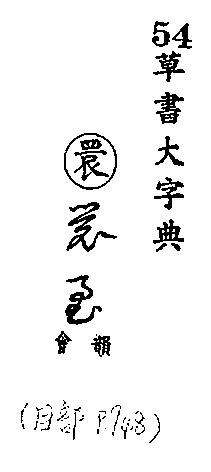 54
草書大字典
睘
會韻
(目部 P.748)